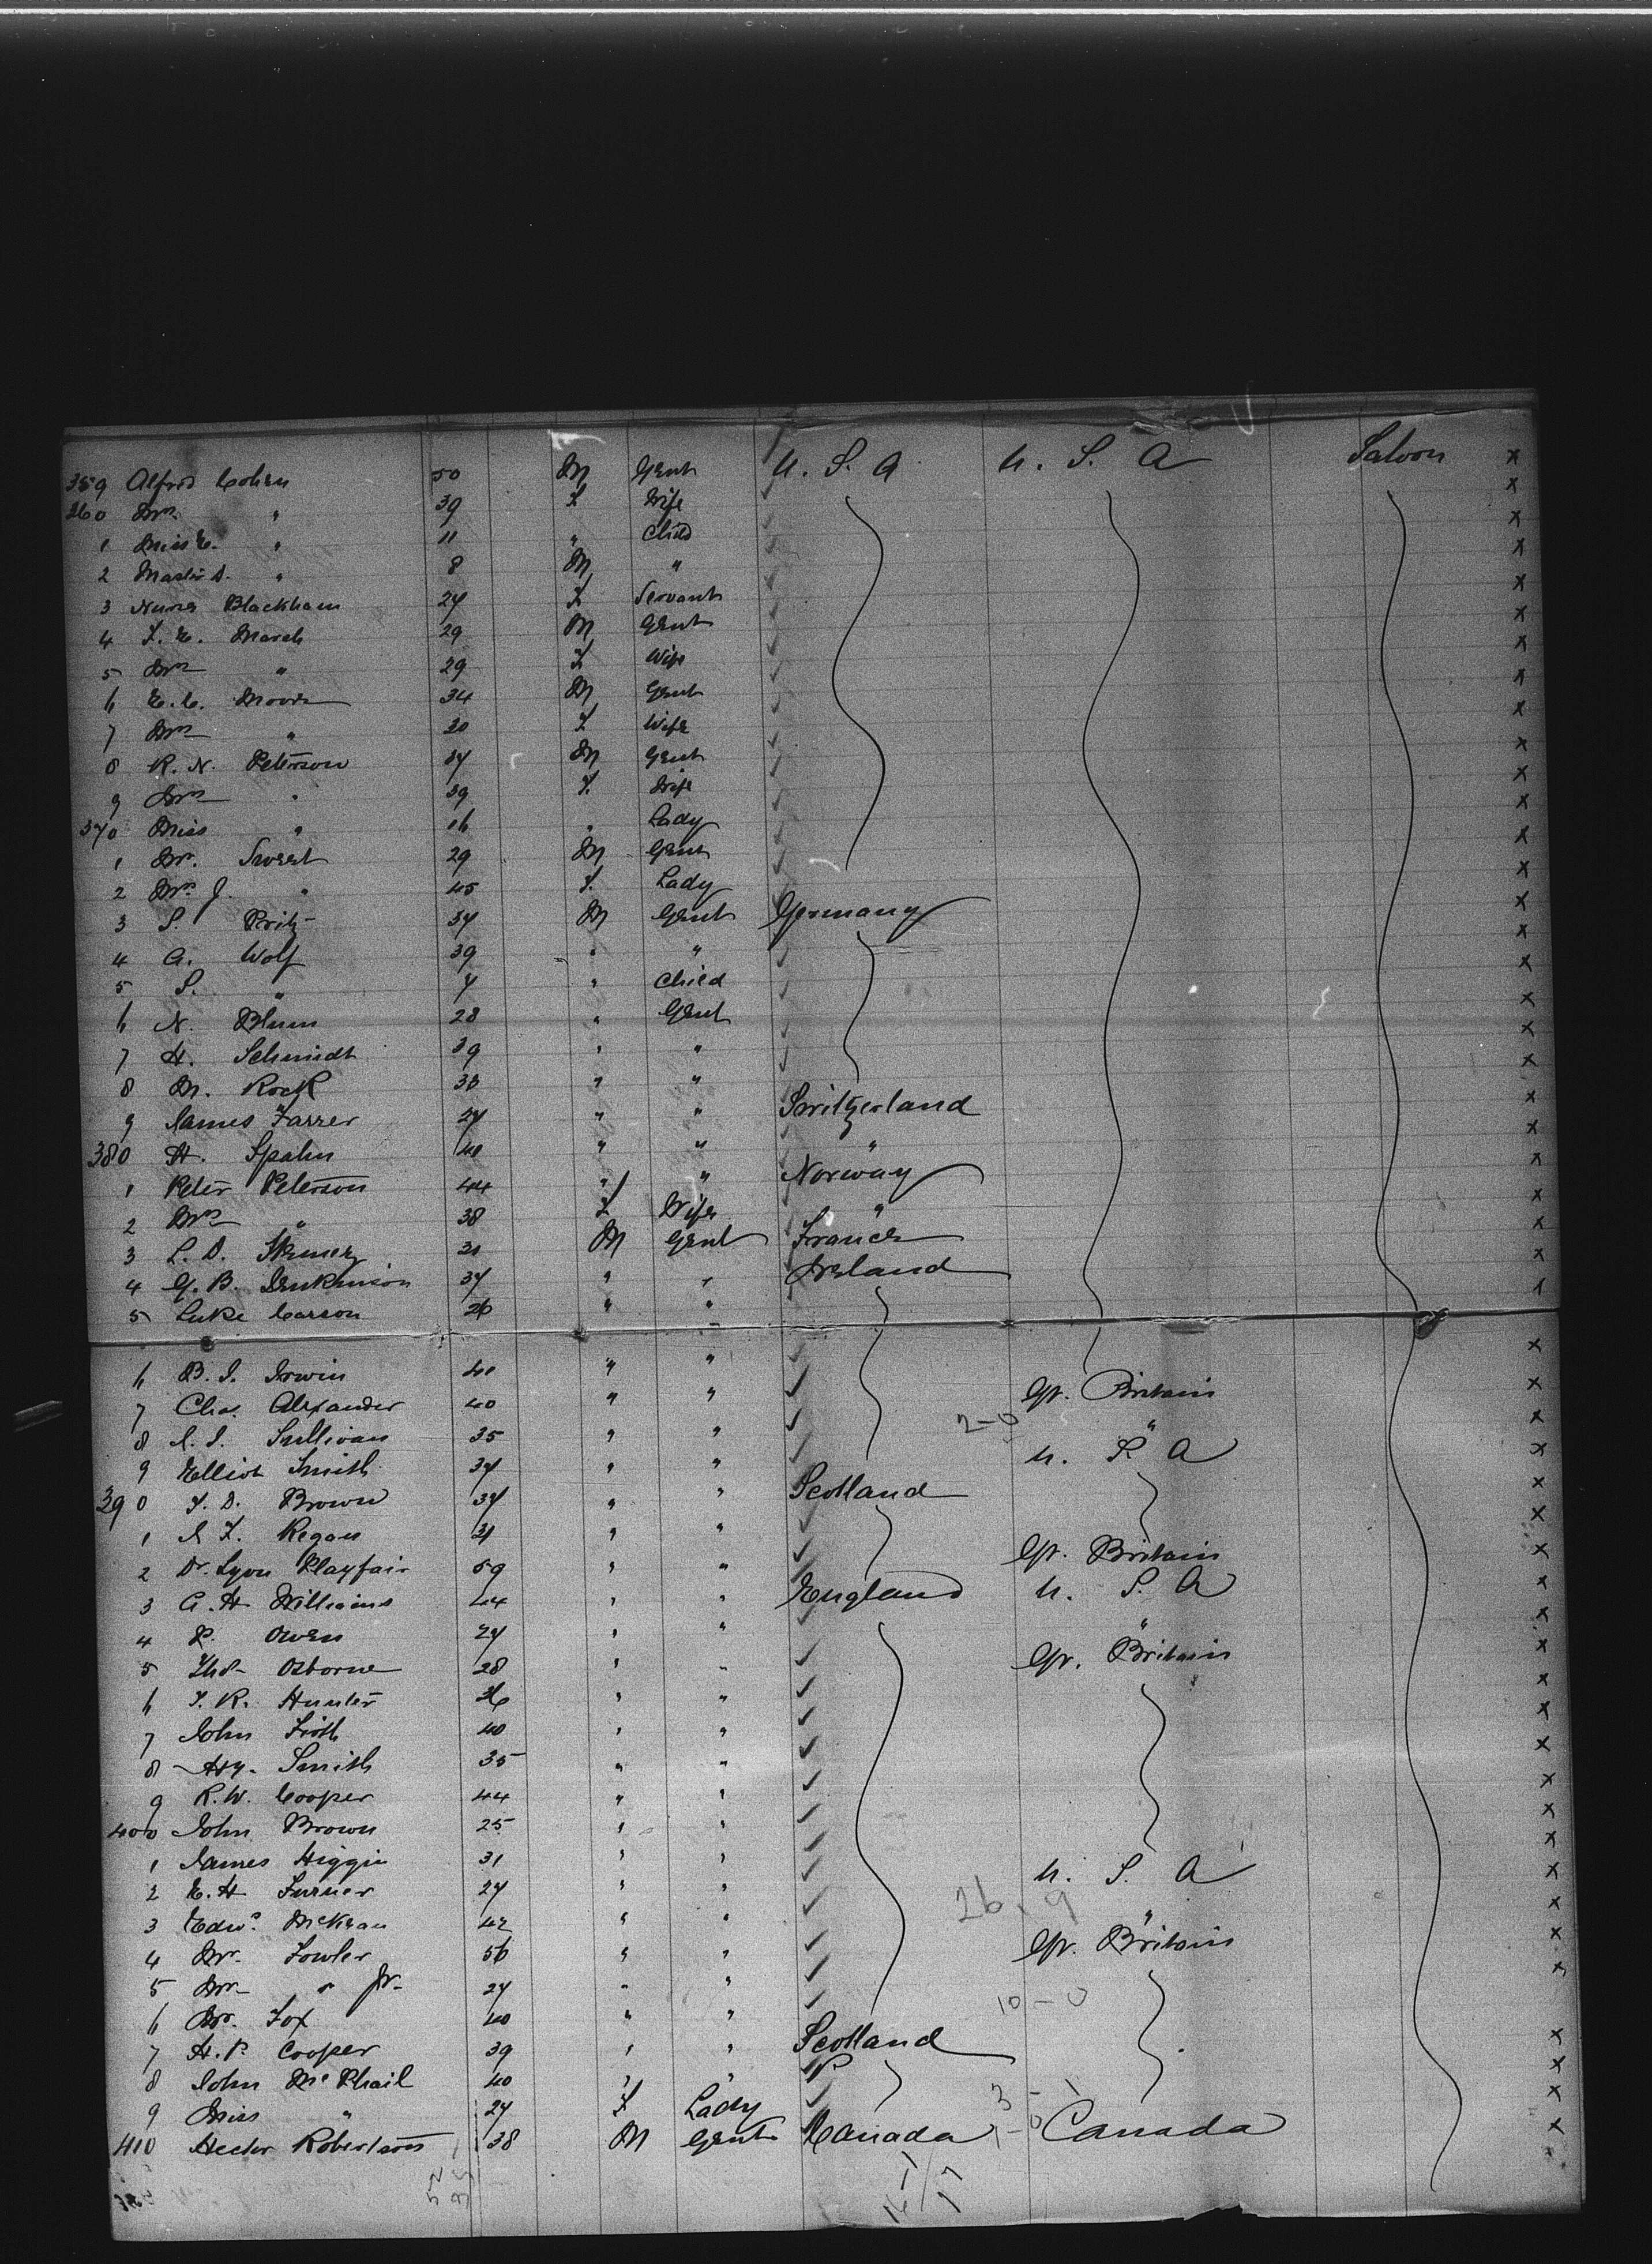 359 Alfred Cohen 50 M Gent U. S. A U. S. A Saloon x
360 Mrs " 39 F Wife x
1 Miss E. " 11 " Child x
2 Master S. " 8 M " x
3 Nurse Blackham 27 F Servant x
4 F. E. March 29 M Gent x
5 Mrs " 29 F Wife x
6 E. C. Moore 34 M Gent x
7 Mrs " 30 F Wife x
8 R. N. Peterson 47 M Gent x
9 Mrs " 39 F. Wife x
370 Miss " 16 " Lady x
1 Mr. Sweet 29 M Gent x
2 Mrs J. " 45 F. Lady x
3 S. Pritz 37 M Gent Germany x
4 A. Wolf 39 " " x
5 S. " 7 " Child x
6 N. Blum 28 " Gent x
7 H. Schmidt 39 " " x
8 M. Rock 33 " " x
9 James Farrer 27 " " Switzerland x
380 H. Spahn 41 " " " x
1 Peter Peterson 44 " " Norway x
2 Mrs " 38 F Wife " x
3 L. D. 31 M Gent France x
4 G. B. Jenkinson 37 " " Ireland x
5 Luke Carson 26 " "
6 B. I. Irwin 41 " " x
7 Chas. Alexander 40 " " Gr. Britain x
8 J. J. Sullivan 35 " " 2-0 " x
9 Elliot Smith 37 " " U. S. A x
390 T. D. Brown 37 " " Scotland x
1 J F. Regan 31 " " x
2 Dr. Lyon Playfair 59 " " Gr. Britain x
3 A. H Williams 44 " " England U. S. A x
4 P. Owen 27 " " " x
5 Thos Osborne 28 " " Gr. Britain x
6 T. R. Hunter 36 " " x
7 John Firth 40 " " x
8 Hy. Smith 35 " " x
9 R. W. Cooper 44 " " x
400 John Brown 25 " " x
1 James Higgin 31 " " x
2 E. H Turner 27 " " U. S. A x
3 Edwd. McKean 42 " " 26. 9 " x
4 Mr. Fowler 56 " " Gr. Britain x
5 Mr " Jr. 27 " " x
6 Mr. Fox 40 " " 10-0
7 H. P. Cooper 39 " " Scotland x
8 John McPhail 40 " " x
9 Miss " 27 F Lady 3-1 x
410 Hector Robertson 38 M Gent Canada 1-0 Canada x
52